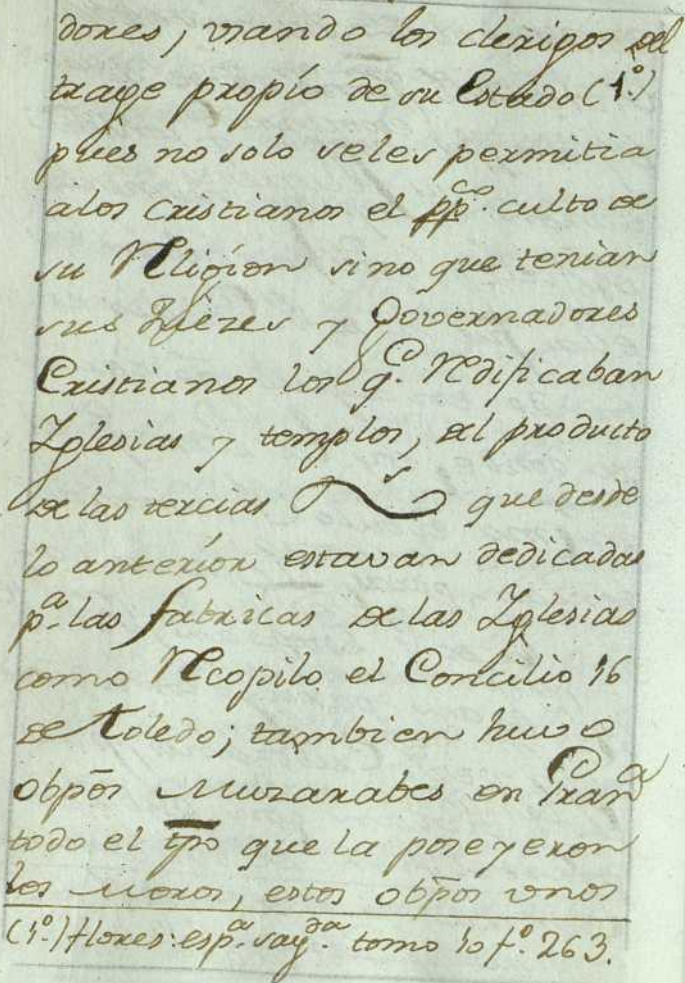 dores, usando los clerigos del
trage propio de su Estado (1º)
pues no solo seles permitia
alos Cristianos el ppco. culto de
su Religion sino que tenian
sus Juezes y Governadores
Cristianos los qe. Redificaban
Yglesias y templos, del producto
de las tercias que desde
lo anterior estavan dedicadas
pa. las fabricas de las Yglesias
como Recopilo el Concilio 16
de Toledo; tambien huvo
obpōs Muzarabes en Grana
todo el tpō que la poseyeron
los Moros, estos obpōs unos
(1º) flores: espa. sagda. tomo 10 fº. 263.